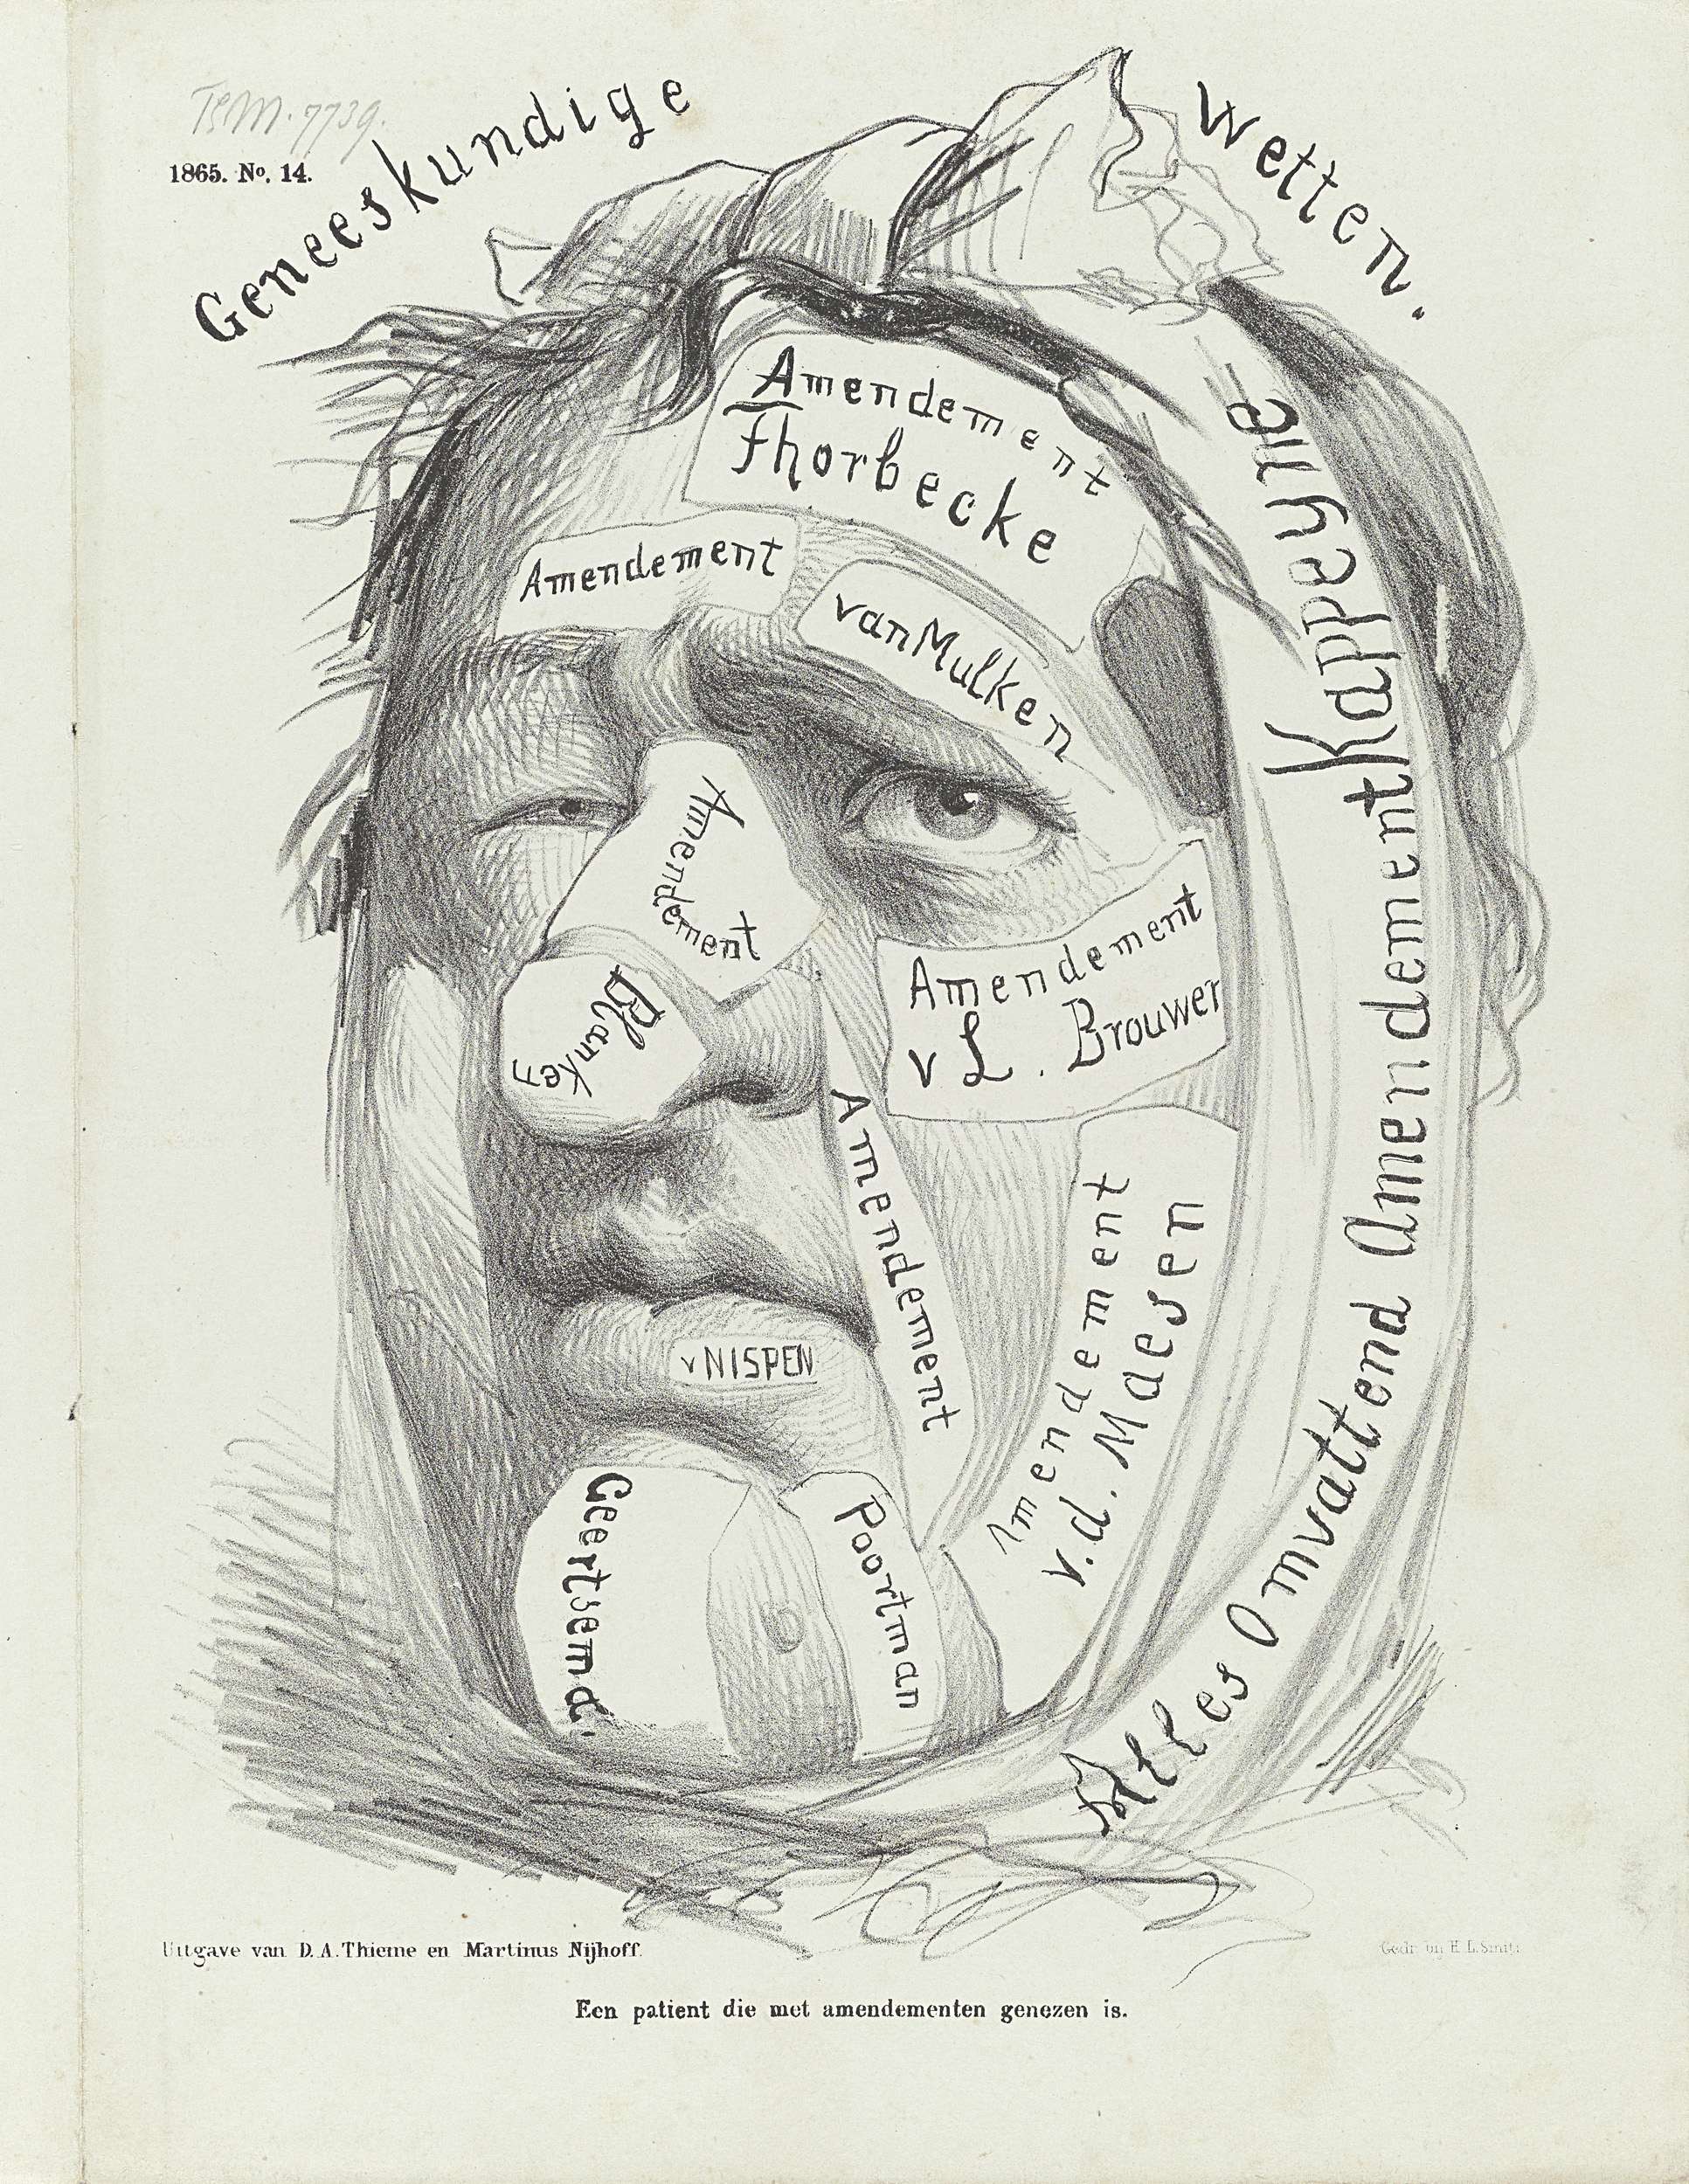 TeM. 7739.
1865. No. 14.
Geneeskundige Wetten.
Amendement
Thorbecke
Amendement
van Mulken
Amendement
Blanken
Amendement
v L. Brouwer
Amendement
Amendement
v.d. Maesen
v NISPEN
Geertsema.
Poortman
Alles Omvattend Amendement Kappeyne
Uitgave van D. A. Thieme en Martinus Nijhoff.
Gedr. bij E. L. Smith
Een patient die met amendementen genezen is.